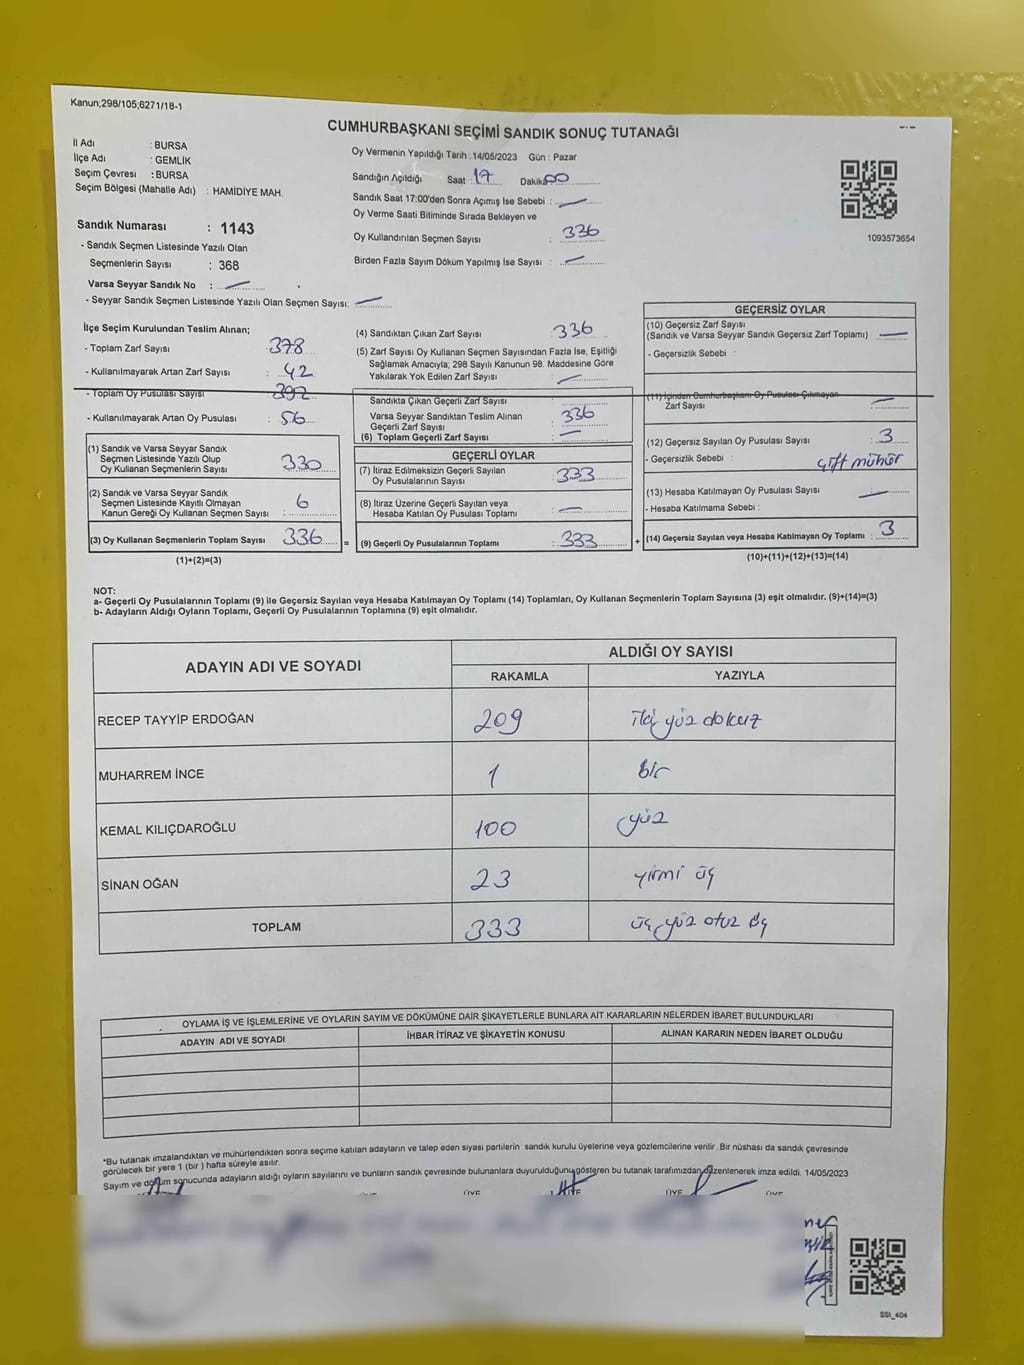 Kanun;298/105;6271/18-1
CUMHURBAŞKANI SEÇİMİ SANDIK SONUÇ TUTANAĞI
İl Adı : BURSA
İlçe Adı : GEMLİK
Seçim Çevresi : BURSA
Seçim Bölgesi (Mahalle Adı) : HAMİDİYE MAH.
Sandık Numarası : 1143
- Sandık Seçmen Listesinde Yazılı Olan
Seçmenlerin Sayısı : 368
Varsa Seyyar Sandık No : —
- Seyyar Sandık Seçmen Listesinde Yazılı Olan Seçmen Sayısı: —
Oy Vermenin Yapıldığı Tarih :14/05/2023 Gün : Pazar
Sandığın Açıldığı Saat : 17 Dakika 00
Sandık Saat 17:00'den Sonra Açımış İse Sebebi : —
Oy Verme Saati Bitiminde Sırada Bekleyen ve
Oy Kullandırılan Seçmen Sayısı : 336
Birden Fazla Sayım Döküm Yapılmış İse Sayısı : —
1093573654
İlçe Seçim Kurulundan Teslim Alınan;
- Toplam Zarf Sayısı : 378
- Kullanılmayarak Artan Zarf Sayısı : 42
- Toplam Oy Pusulası Sayısı : 392
- Kullanılmayarak Artan Oy Pusulası : 56
(1) Sandık ve Varsa Seyyar Sandık
Seçmen Listesinde Yazılı Olup
Oy Kullanan Seçmenlerin Sayısı : 330
(2) Sandık ve Varsa Seyyar Sandık
Seçmen Listesinde Kayıtlı Olmayan
Kanun Gereği Oy Kullanan Seçmen Sayısı : 6
(3) Oy Kullanan Seçmenlerin Toplam Sayısı : 336 =
(1)+(2)=(3)
(4) Sandıktan Çıkan Zarf Sayısı : 336
(5) Zarf Sayısı Oy Kullanan Seçmen Sayısından Fazla İse, Eşitliği
Sağlamak Amacıyla; 298 Sayılı Kanunun 98. Maddesine Göre
Yakılarak Yok Edilen Zarf Sayısı : —
Sandıkta Çıkan Geçerli Zarf Sayısı
Varsa Seyyar Sandıktan Teslim Alınan : 336
Geçerli Zarf Sayısı
(6) Toplam Geçerli Zarf Sayısı : —
GEÇERLİ OYLAR
(7) İtiraz Edilmeksizin Geçerli Sayılan
Oy Pusulalarının Sayısı : 333
(8) İtiraz Üzerine Geçerli Sayılan veya
Hesaba Katılan Oy Pusulası Toplamı : —
(9) Geçerli Oy Pusulalarının Toplamı : 333 +
GEÇERSİZ OYLAR
(10) Geçersiz Zarf Sayısı
(Sandık ve Varsa Seyyar Sandık Geçersiz Zarf Toplamı) : —
- Geçersizlik Sebebi :
(11) İçinden Cumhurbaşkanı Oy Pusulası Çıkmayan
Zarf Sayısı : —
(12) Geçersiz Sayılan Oy Pusulası Sayısı : 3
- Geçersizlik Sebebi : Çift mühür
(13) Hesaba Katılmayan Oy Pusulası Sayısı : —
- Hesaba Katılmama Sebebi :
(14) Geçersiz Sayılan veya Hesaba Katılmayan Oy Toplamı : 3
(10)+(11)+(12)+(13)=(14)
NOT:
a- Geçerli Oy Pusulalarının Toplamı (9) ile Geçersiz Sayılan veya Hesaba Katılmayan Oy Toplamı (14) Toplamları, Oy Kullanan Seçmenlerin Toplam Sayısına (3) eşit olmalıdır. (9)+(14)=(3)
b- Adayların Aldığı Oyların Toplamı, Geçerli Oy Pusulalarının Toplamına (9) eşit olmalıdır.
ADAYIN ADI VE SOYADI ALDIĞI OY SAYISI
RAKAMLA YAZIYLA
RECEP TAYYİP ERDOĞAN 209 iki yüz dokuz
MUHARREM İNCE 1 bir
KEMAL KILIÇDAROĞLU 100 yüz
SİNAN OĞAN 23 yirmi üç
TOPLAM 333 üç yüz otuz üç
OYLAMA İŞ VE İŞLEMLERİNE VE OYLARIN SAYIM VE DÖKÜMÜNE DAİR ŞİKAYETLERLE BUNLARA AİT KARARLARIN NELERDEN İBARET BULUNDUKLARI
ADAYIN ADI VE SOYADI İHBAR İTİRAZ VE ŞİKAYETİN KONUSU ALINAN KARARIN NEDEN İBARET OLDUĞU
*Bu tutanak imzalandıktan ve mühürlendikten sonra seçime katılan adayların ve talep eden siyasi partilerin sandık kurulu üyelerine veya gözlemcilerine verilir .Bir nüshası da sandık çevresinde
görülecek bir yere 1 (bir ) hafta süreyle asılır.
Sayım ve döküm sonucunda adayların aldığı oyların sayılarını ve bunların sandık çevresinde bulunanlara duyurulduğunu gösteren bu tutanak tarafımızdan düzenlenerek imza edildi. 14/05/2023
ÜYE ÜYE ÜYE ÜYE
SSI_404